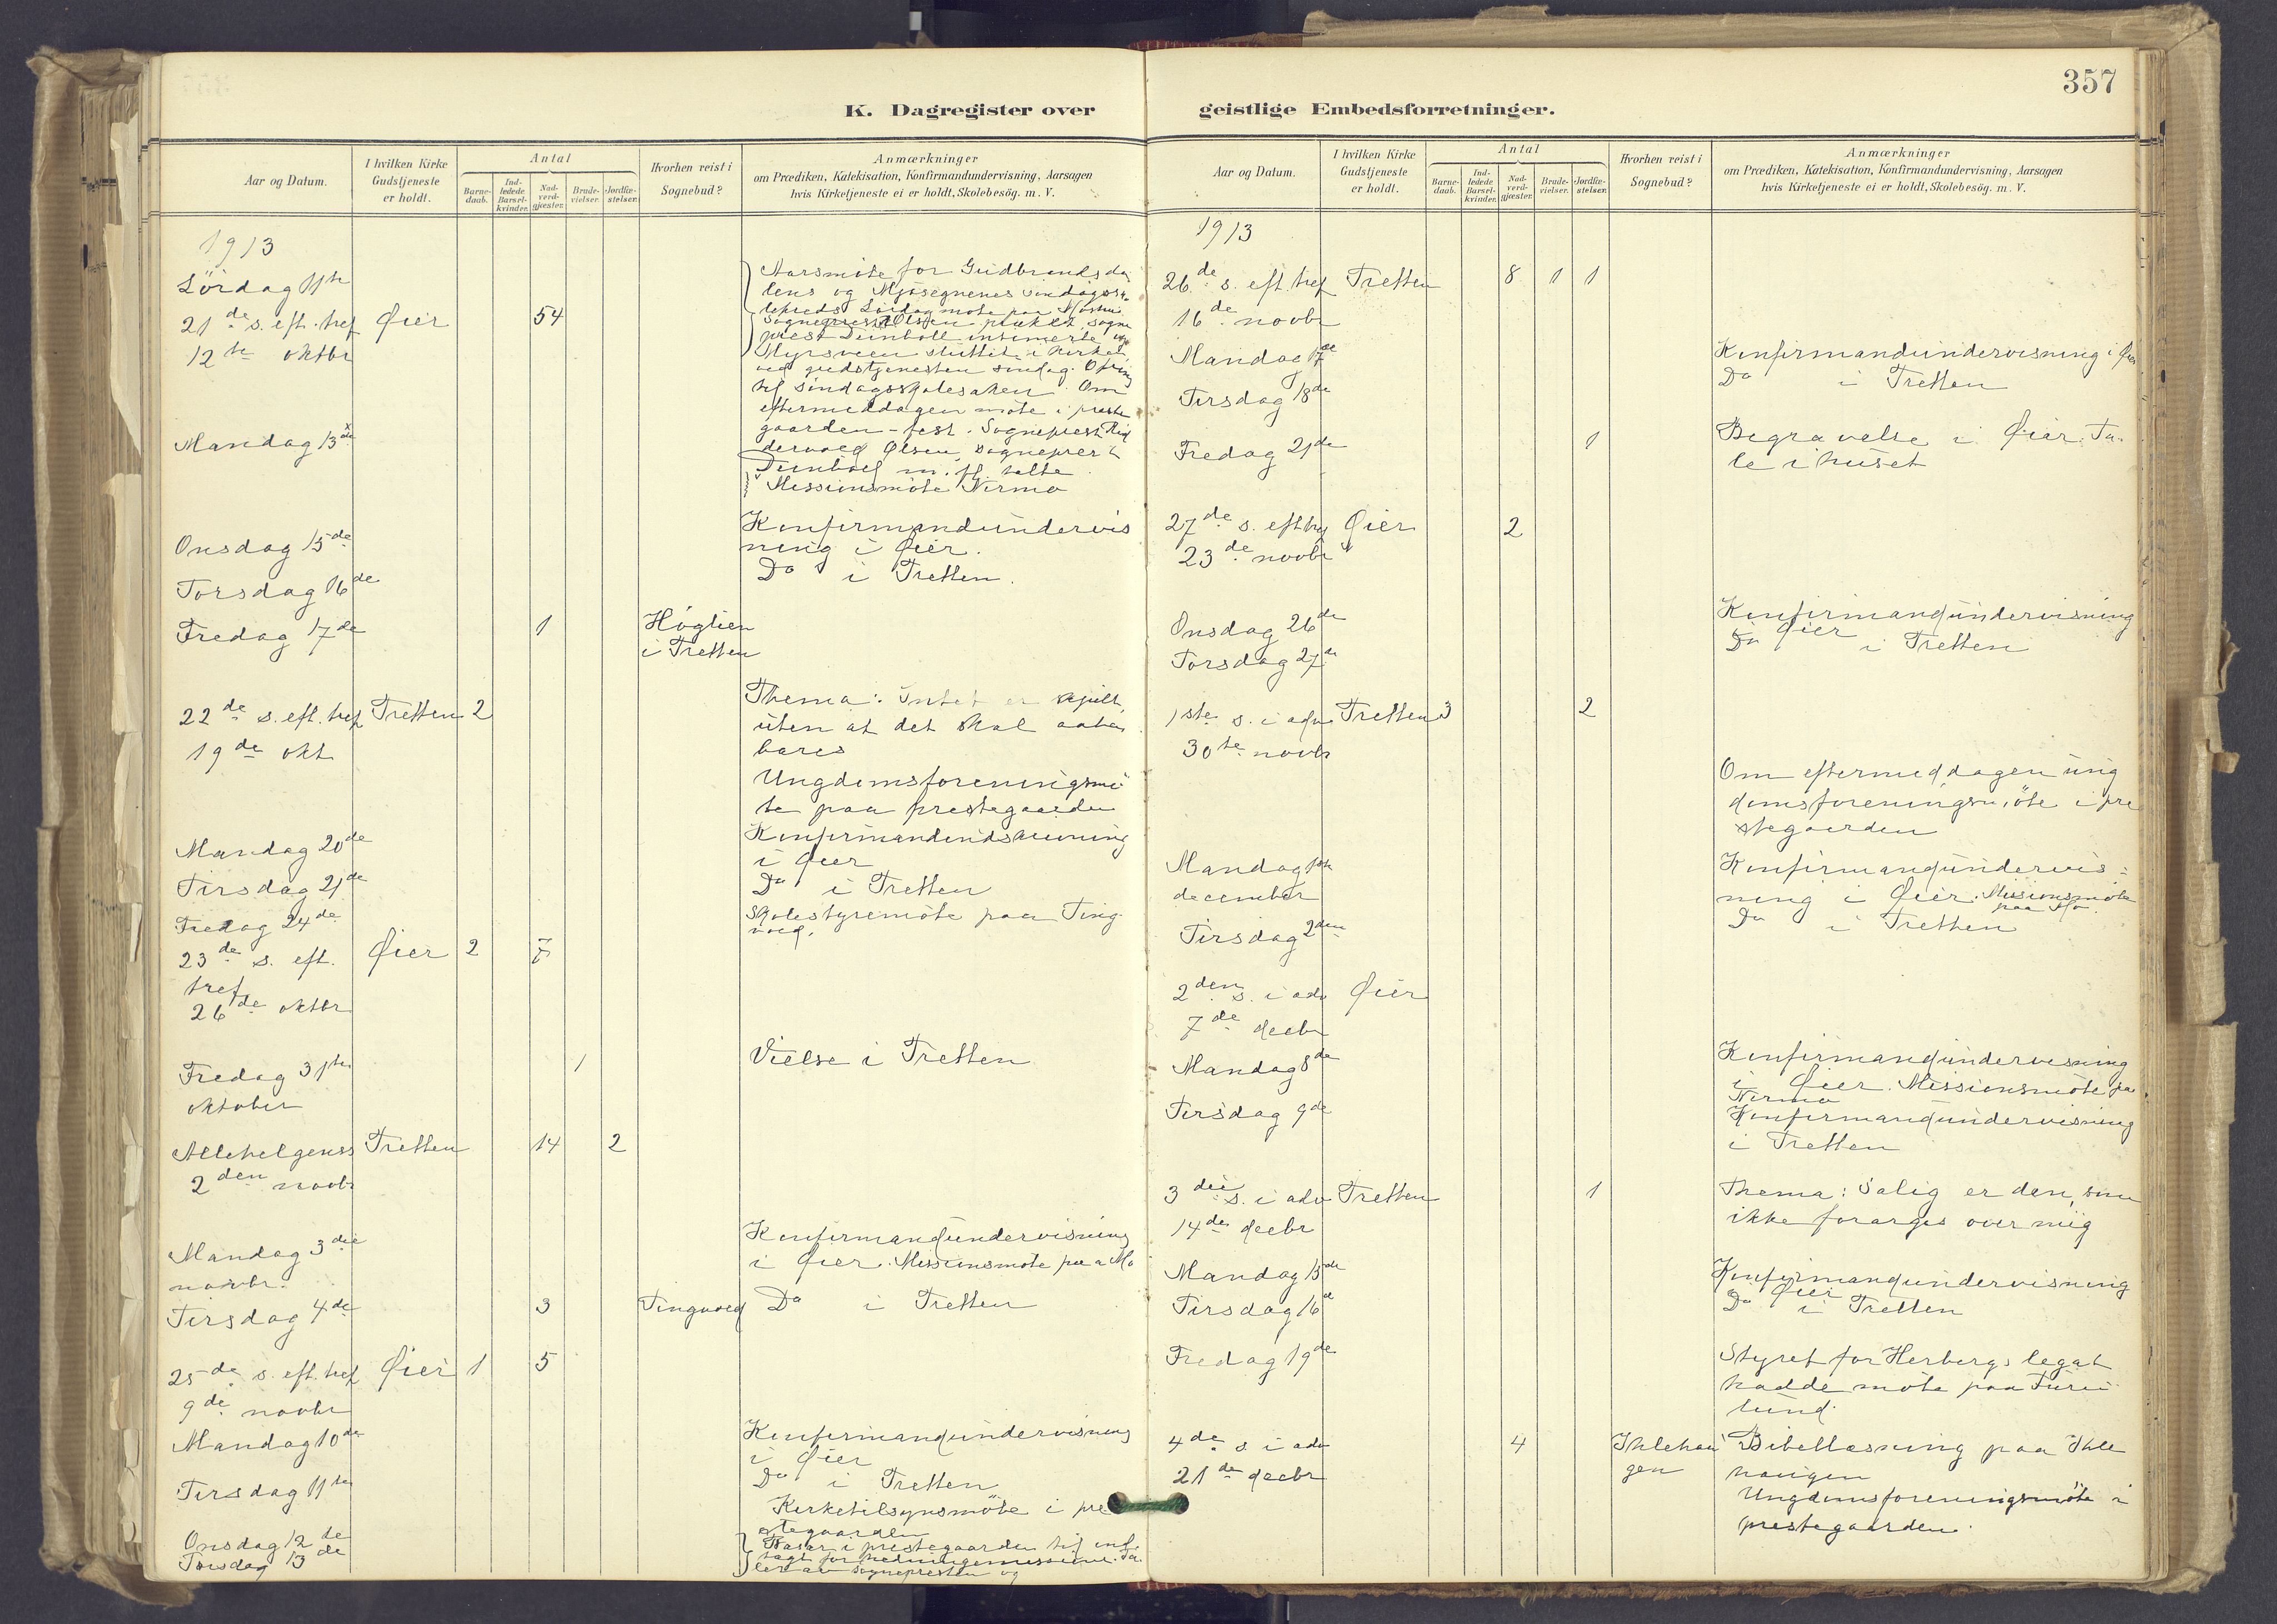 357
K. Dagregister over
Aar og Datum.
I hvilken Kirke Gudstjeneste er holdt.
Antal
Barne-daab.
Ind-ledede Barsel-kvinder.
Nad-verd-gjæster.
Brude-vielser.
Jordfæ-stelser.
Hvorhen reist i Sognebud?
Anmærkninger
om Prædiken, Katekisation, Konfirmandundervisning, Aarsagen
hvis Kirketjeneste ei er holdt, Skolebesøg. m. V.
1913
Lördag 11te
Aarsmöte for Gudbrandsda
lens og Mjösegnenes söndagssk.
21de s. eft. tref Øier 54
Sogneprest Olsen
12te oktbr
prest
sluttet i kirken
ved gudstjenesten söndag. Ofring
til söndagsskolesaken. Om
eftermiddagen möte i preste
Mandag 13de
gaarden - fest. Sogneprest
Olsen, sogneprest
m. fl. talte
Missionsmöte Nermo
Onsdag 15de
Konfirmandundervis
ning i Øier.
Torsdag 16de
Do i Tretten.
Fredag 17de 1 Höglien
i Tretten
22de s. eft. tref Tretten 2
Thema: Intet er skjult,
uten at det skal aaben
bares
19de okt.
Ungdomsforeningsmö
te paa prestegaarden
Mandag 20de
i Øier
Tirsdag 21de
Do i Tretten
Fredag 24de
Skolestyremöte paa Ting
vold.
23de s. eft. Øier 2 7
tref
26de oktbr
Fredag 31te 1 Vielse i Tretten
oktober
Allehelgenss Tretten 14 2
2den novbr
Mandag 3die
novbr.
Konfirmandundervisning
i Øier. Missionsmöte paa Mo
Tirsdag 4de 3 Tingvold Do i Tretten
25de s. eft. tref Øier 1 5
9de novbr
Mandag 10de
Konfirmandundervisning
i Øier
Tirsdag 11te
Do i Tretten
Kirketilsynsmöte i pre
stegaarden
Onsdag 12te
Torsdag 13de
Basar i prestegaarden til ind
tægt for hedningemissionen. Ta
ler av sognepresten og
geistlige Embedsforretninger.
Aar og Datum.
I hvilken Kirke Gudstjeneste er holdt.
Antal
Barne-daab.
Ind-ledede Barsel-kvinder.
Nad-verd-gjæster.
Brude-vielser.
Jordfæ-stelser.
Hvorhen reist i Sognebud?
Anmærkninger
om Prædiken, Katekisation, Konfirmandundervisning, Aarsagen
hvis Kirketjeneste ei er holdt, Skolebesøg. m. V.
1913
26de s. eft. tref Tretten 8 1 1
16de novbr
Mandag 17de Konfirmandundervisning i Øier
Tirsdag 18de Do i Tretten
Fredag 21de 1 Begravelse i Øier. Ta-
le i huset
27de s. eft tref Øier 2
23de novbr
Onsdag 26de Konfirmandundervisning
Øier
Torsdag 27de Do i Tretten
1ste s. i adv Tretten 3 2
30te novbr
Om eftermiddagen ung
domsforeningsmöte i pre
stegaarden
Mandag 1ste
december
Konfirmandundervis-
ning i Øier. Missionsmöte
paa Mo.
Tirsdag 2den Do i Tretten
2den s. i adv Øier
7de decbr
Mandag 8de Konfirmandundervisning
i Øier. Missionsmöte paa
Nermo
Tirsdag 9de Konfirmandundervisning
i Tretten
3die s. i adv Tretten 1 Thema: Salig er den, som
ikke forarges over mig
14de decbr
Mandag 15de Konfirmandundervisning
Øier
Tirsdag 16de Do i Tretten
Fredag 19de Styret for Herbergs legat
hadde möte paa Furu
lund.
4de s. i adv 4 Ihlehau
gen
Bibellæsning paa Ihle
haugen
21de decbr
Ungdomsforeningsmöte i
prestegaarden.